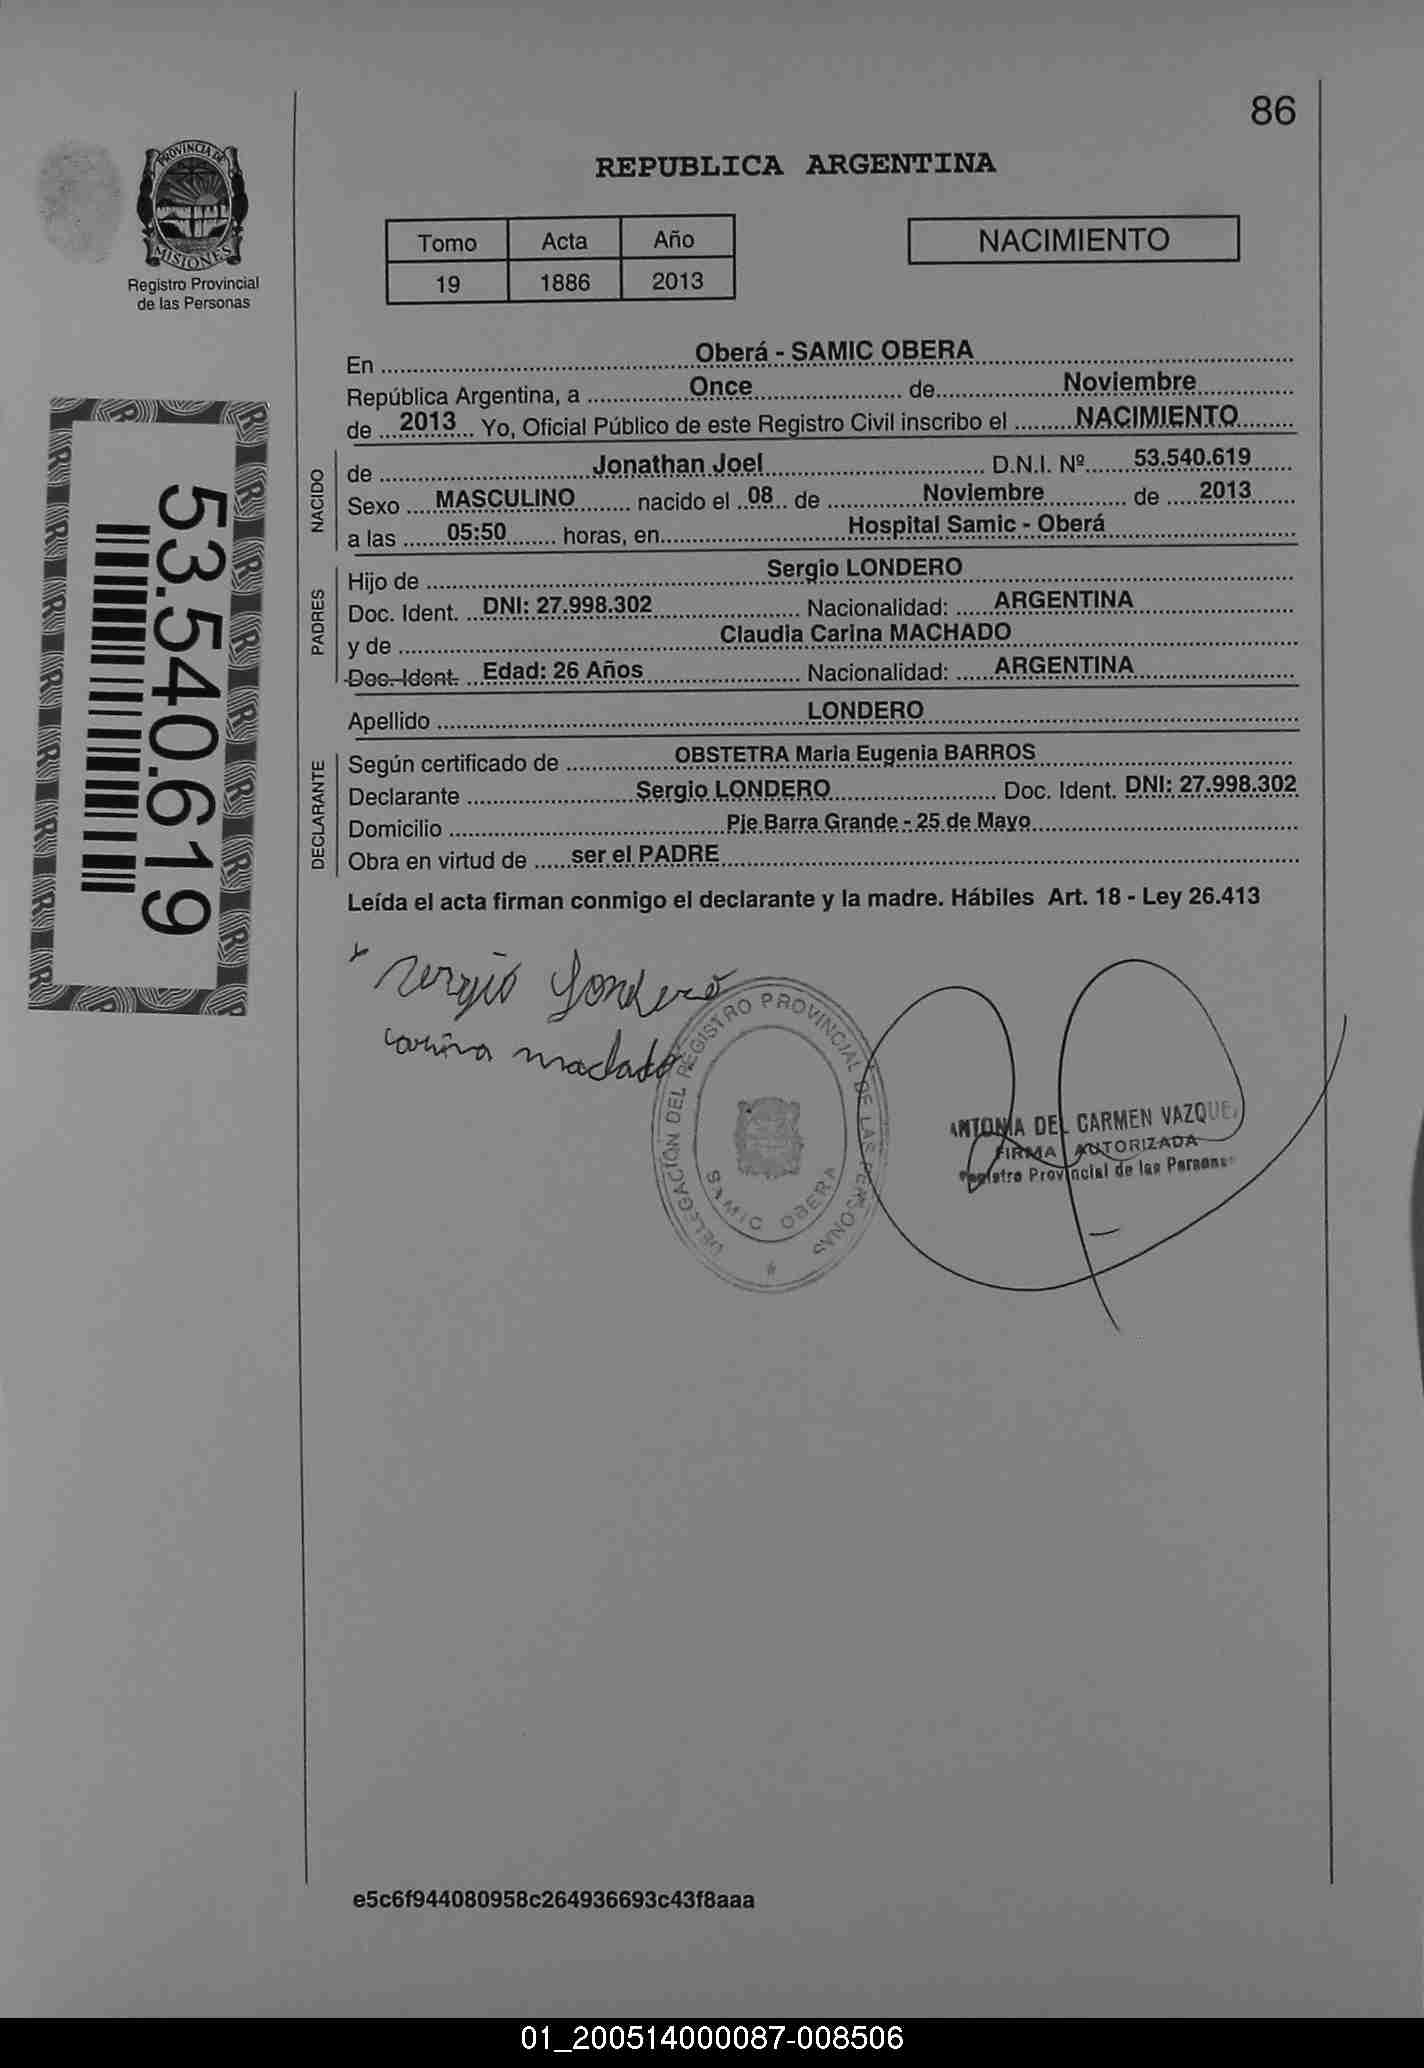 86
REPUBLICA ARGENTINA
PROVINCIA DE MISIONES
Registro Provincial
de las Personas
Tomo Acta Año
19 1886 2013
NACIMIENTO
En Oberá - SAMIC OBERA
República Argentina, a Once de Noviembre
de 2013 Yo, Oficial Público de este Registro Civil inscribo el NACIMIENTO
NACIDO
de Jonathan Joel D.N.I. Nº 53.540.619
Sexo MASCULINO nacido el 08 de Noviembre de 2013
a las 05:50 horas, en Hospital Samic - Oberá
PADRES
Hijo de Sergio LONDERO
Doc. Ident. DNI: 27.998.302 Nacionalidad: ARGENTINA
y de Claudia Carina MACHADO
Doc. Ident. Edad: 26 Años Nacionalidad: ARGENTINA
Apellido LONDERO
DECLARANTE
Según certificado de OBSTETRA Maria Eugenia BARROS
Declarante Sergio LONDERO Doc. Ident. DNI: 27.998.302
Domicilio Pje Barra Grande - 25 de Mayo
Obra en virtud de ser el PADRE
Leída el acta firman conmigo el declarante y la madre. Hábiles Art. 18 - Ley 26.413
53.540.619
Sergio Londero
Carina machado
DELEGACIÓN DEL REGISTRO PROVINCIAL DE LAS PERSONAS
SAMIC OBERA
ANTONIA DEL CARMEN VAZQUEZ
FIRMA AUTORIZADA
Registro Provincial de las Personas
e5c6f944080958c264936693c43f8aaa
01_200514000087-008506